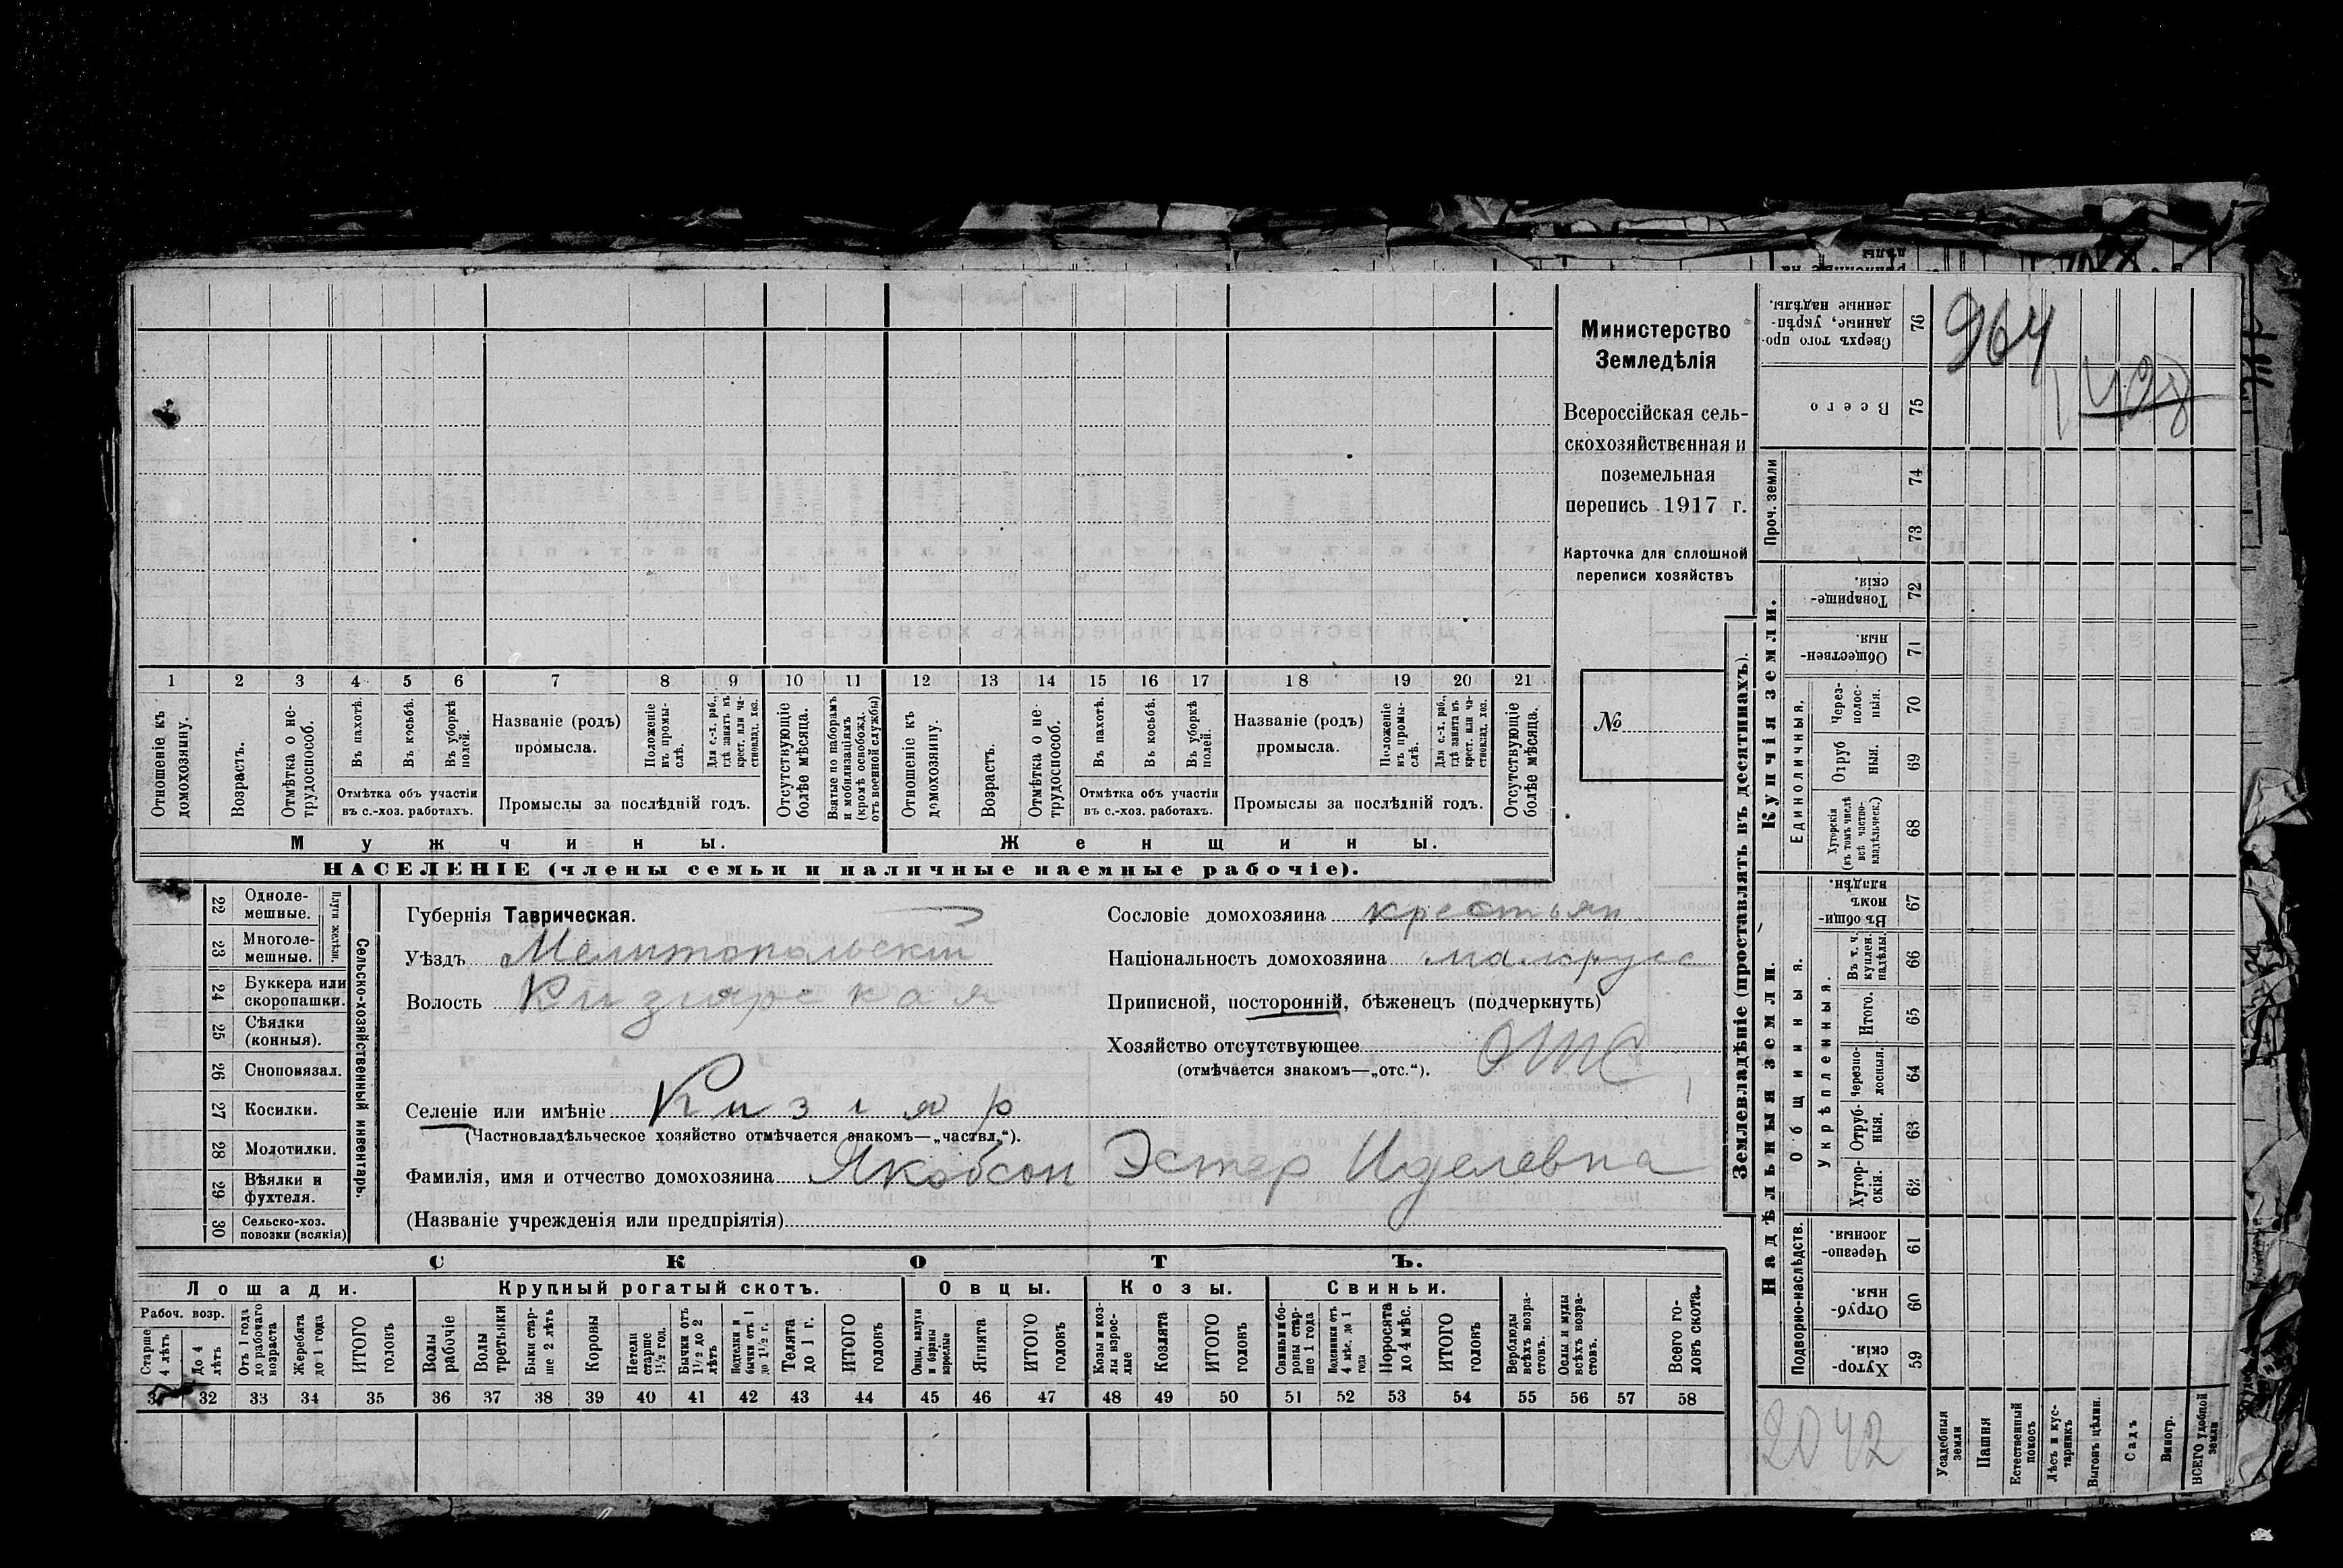 Министерство
Земледѣлія
Всероссійская сель-
скохозяйственная и
поземельная
перепись 1917 г.
Карточка для сплошной
переписи хозяйствъ
№
1 2 3 4 5 6 7 8 9 10 11 12 13 14 15 16 17 18 19 20 21
Отношеніе къ
домохозяину.
Возрастъ.
Отмѣтка о не-
трудоспособ.
Въ пахотѣ.
Въ косьбѣ.
Въ уборкѣ
полей.
Отмѣтка объ участіи
въ с.-хоз. работахъ.
Названіе (родъ)
промысла.
Положеніе
въ промы-
слѣ.
Для с.-х. раб.,
гдѣ занятъ въ
крест. или ча-
стновлад. хоз.
Промыслы за послѣдній годъ.
Отсутствующіе
болѣе мѣсяца.
Взятые по наборамъ
и мобилизаціямъ
(кромѣ освобожд.
отъ военной службы)
Отношеніе къ
домохозяину.
Возрастъ.
Отмѣтка о не-
трудоспособ.
Въ пахотѣ.
Въ косьбѣ.
Въ уборкѣ
полей.
Отмѣтка объ участіи
въ с.-хоз. работахъ.
Названіе (родъ)
промысла.
Положеніе
въ промы-
слѣ.
Для с.-х. раб.,
гдѣ занята въ
крест. или ча-
стновлад. хоз.
Промыслы за послѣдній годъ.
Отсутствующіе
болѣе мѣсяца.
Мужчины.
Женщины.
НАСЕЛЕНІЕ (члены семьи и наличные наемные рабочіе).
22 Одноле-
мешные.
23 Многоле-
мешные.
Плуги желѣзн.
24 Буккера или
скоропашки.
25 Сѣялки
(конныя).
26 Сноповязал.
27 Косилки.
28 Молотилки.
29 Вѣялки и
фухтеля.
30 Сельско-хоз.
повозки (всякія)
Сельско-хозяйственный инвентарь.
Губернія Таврическая.
Уѣздъ Мелитопольскій
Волость Кизіярская
Сословіе домохозяина крестьян
Національность домохозяина малорусс
Приписной, посторонній, бѣженецъ (подчеркнуть)
Хозяйство отсутствующее отс
(отмѣчается знакомъ—„отс.“).
Селеніе или имѣніе Кизіяр
(Частновладѣльческое хозяйство отмѣчается знакомъ—„частвл.“).
Фамилія, имя и отчество домохозяина Якобсон Эстер Иделевна
(Названіе учрежденія или предпріятія)
СКОТЪ.
Лошади.
Крупный рогатый скотъ.
Овцы.
Козы.
Свиньи.
Рабоч. возр.
Старше
4 лѣтъ
До 4
лѣтъ
Отъ 1 года
до рабочаго
возраста
Жеребята
до 1 года
ИТОГО
головъ
Волы
рабочіе
Волы
третьяки
Быки стар-
ше 2 лѣтъ
Коровы
Нетели
старше
1½ год.
Бычки отъ
1½ до 2
лѣтъ
Подтелки и
бычки отъ 1
до 1½ г.
Телята
до 1 г.
ИТОГО
головъ
Овцы, валухи
и бараны
взрослые
Ягнята
ИТОГО
головъ
Козы и коз-
лы взрос-
лые
Козлята
ИТОГО
головъ
Свиньи и бо-
ровы стар-
ше 1 года
Подсвинки отъ
4 мѣс. до 1
года
Поросята
до 4 мѣс.
ИТОГО
головъ
Верблюды
всѣхъ возра-
стовъ.
Ослы и мулы
всѣхъ возра-
стовъ.
Всего го-
ловъ скота.
32 33 34 35 36 37 38 39 40 41 42 43 44 45 46 47 48 49 50 51 52 53 54 55 56 57 58
Землевладѣніе (проставлять въ десятинахъ).
Купчія земли.
Надѣльныя земли.
76 Сверхъ того про-
данные, укрѣп-
ленные надѣлы.
75 Всего
Проч. земли
74
73
72 Товарище-
скія.
71 Обществен-
ныя.
Единоличныя.
70 Через-
полос-
ныя.
69 Отруб
ныя.
68 Хуторскія
(въ томъ числѣ
всѣ частно-
владѣльческ.)
Общинныя.
67 Въ общи-
номъ
владѣн.
Укрѣпленныя.
66 Въ т. ч.
куплен.
надѣлы.
65 Итого.
64 Черезпо-
лосныя.
63 Отруб-
ныя.
62 Хутор-
скія.
Подворно-наслѣдств.
61 Черезпо-
лосныя.
60 Отруб-
ныя.
59 Хутор-
скія.
964
2042
Усадебныя
земли
Пашня
Естественный
покосъ
Лѣсъ и кус-
тарникъ
Выгонъ цѣлин.
Садъ
Виногр.
ВСЕГО удобной
земли